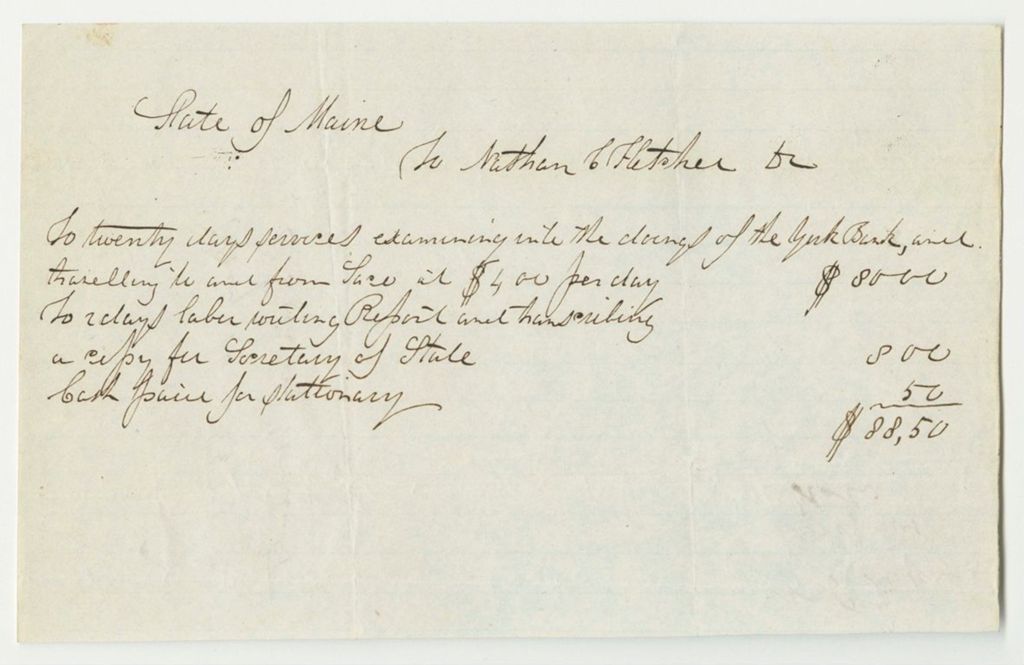 State of Maine
To Nathan C Fletcher Dr
To twenty days services examining into the doings of the York Bank, and
travelling to and from Saco at $4 00 per day $ 80 00
To 2 days labor writing Report and transcribing
a copy for Secretary of State 8 00
Cash paid for Stationary 50
$ 88,50